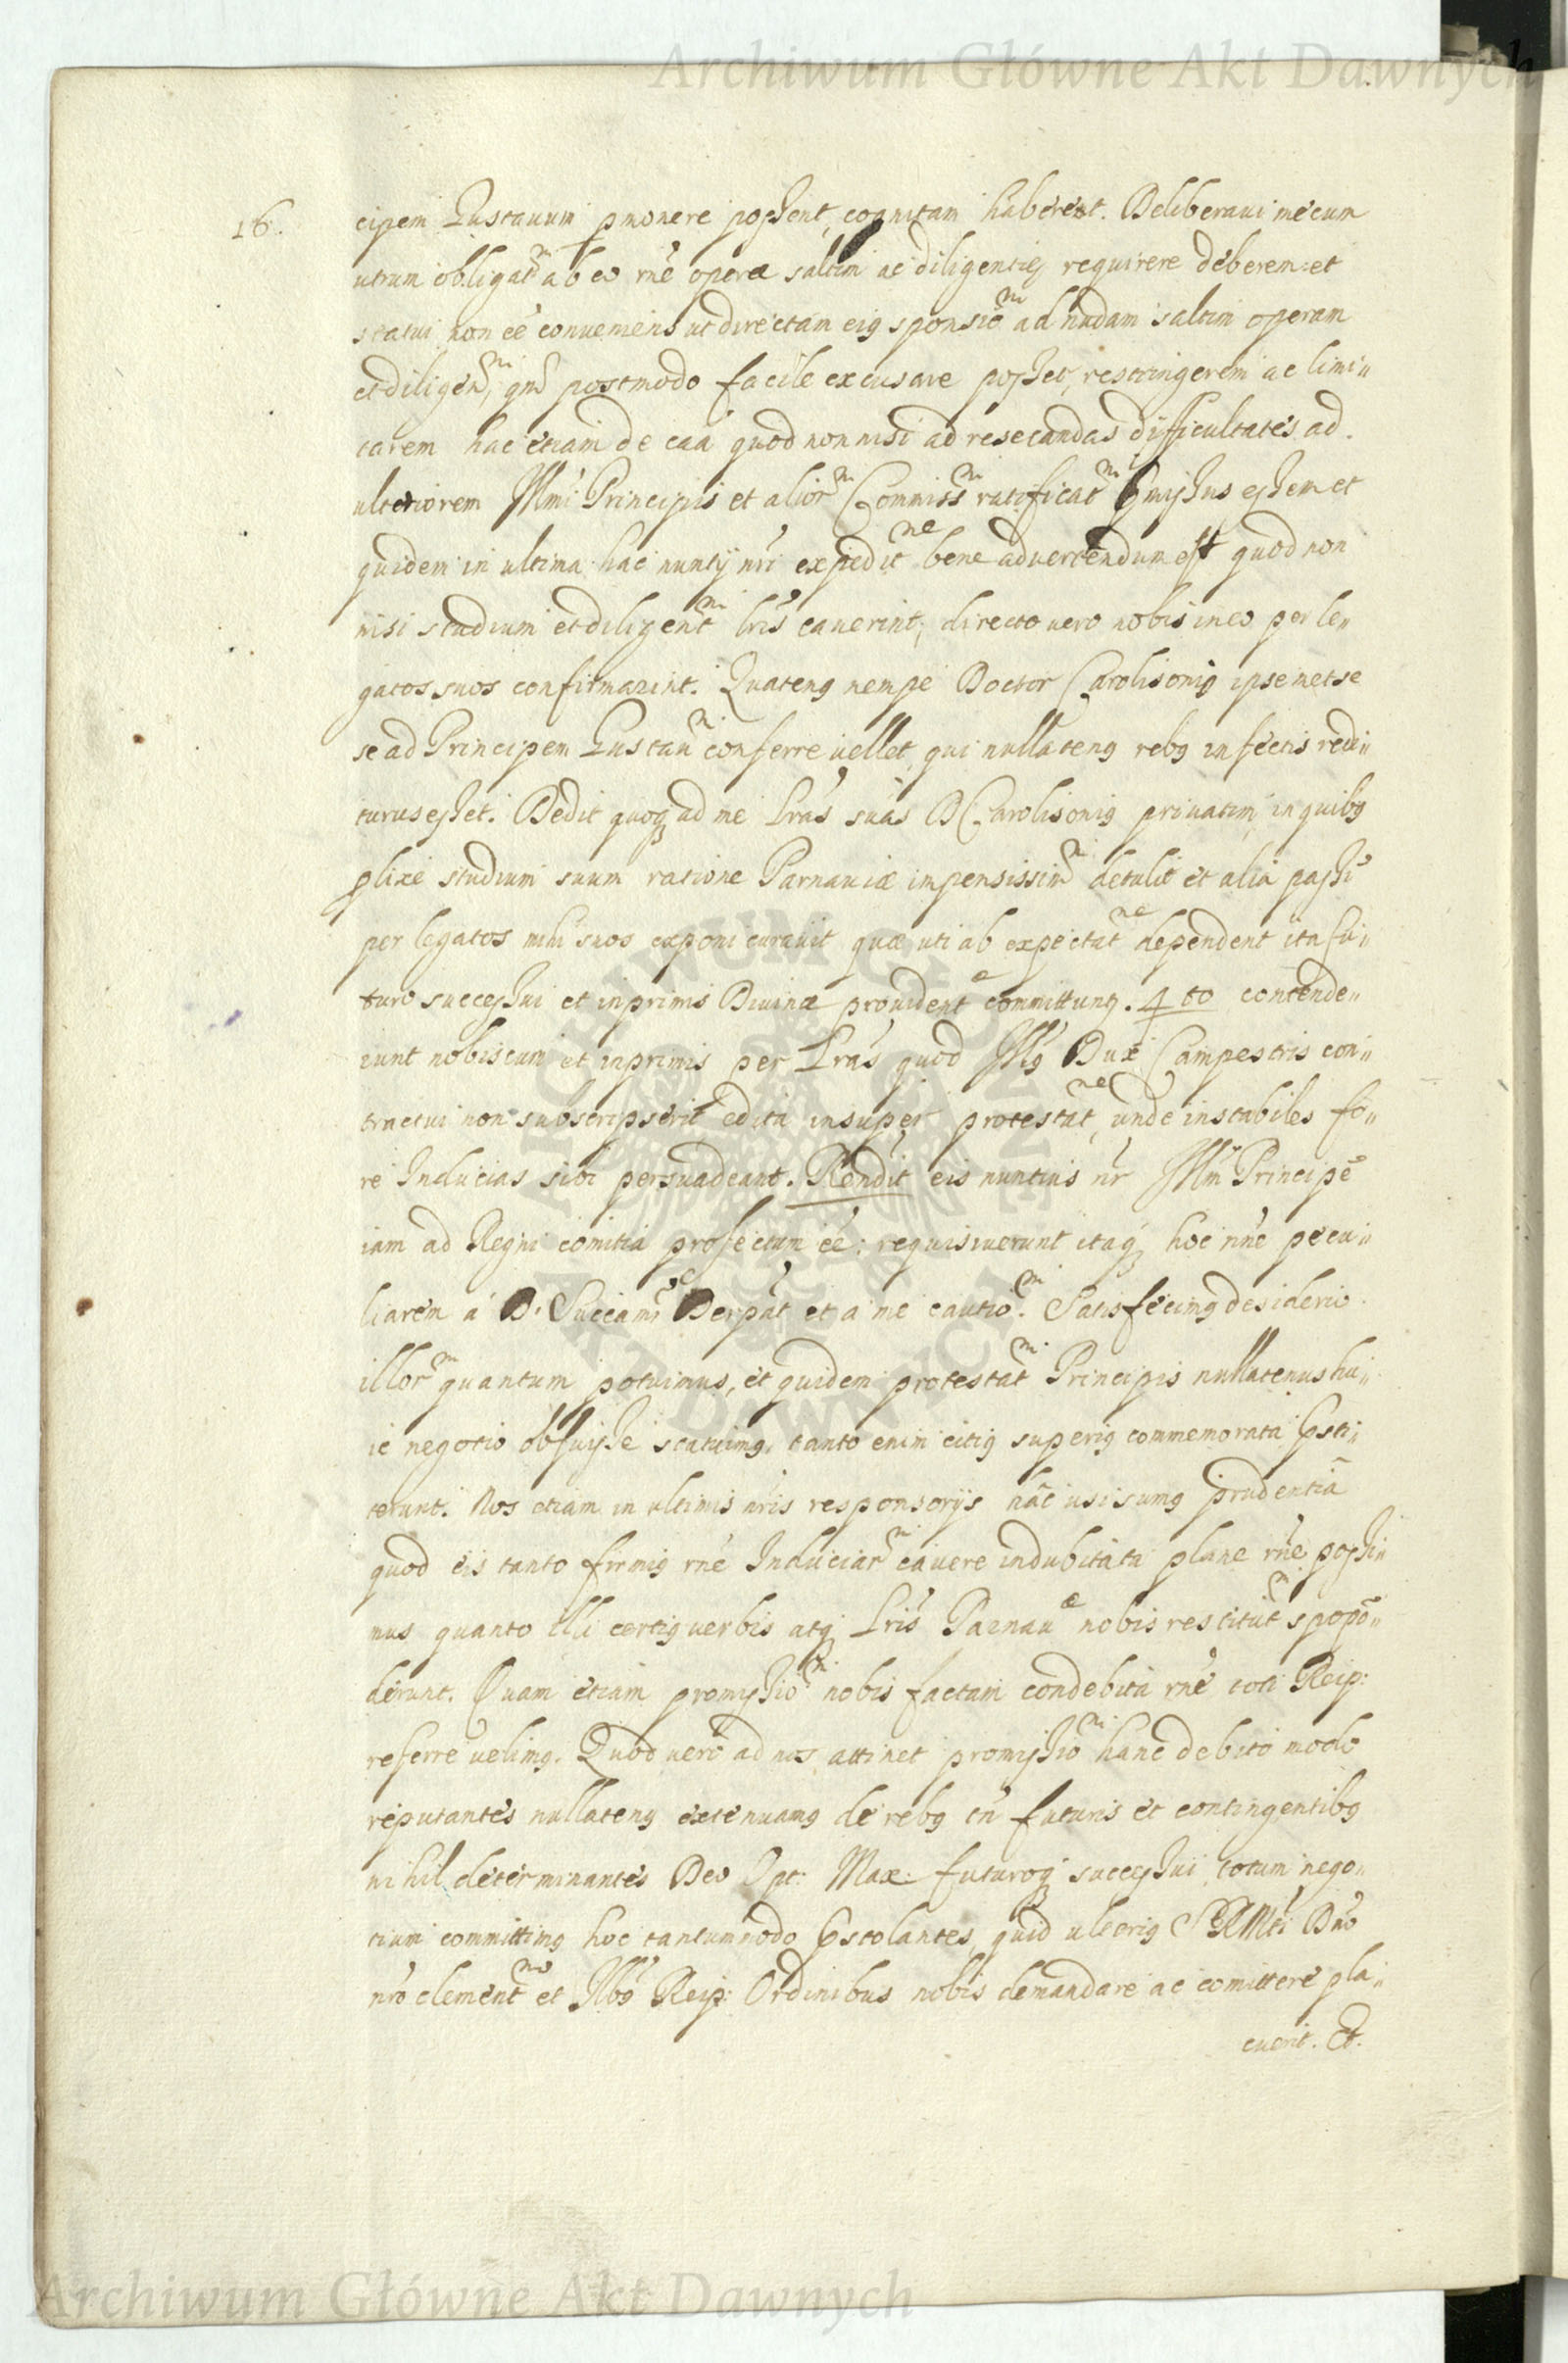 Archiwum Główne Akt Dawnych
16.
cipem Gustauum pmonere possent, cognitam haberent. Deliberaui mecum
utrum obligatm ab eo rñe operæ saltim ac diligentię requirere deberem et
statui non eé conueniens ut directam eig sponsiom ad nudam saltim operam
et diligenm, qm postmodo facile excusare posset, restringerem ac limi„
tarem hac etiam de caa quod non nisi ad resecandas difficultates ad
ulteriorem Illmi Principis et aliorm Commissm ratificatm missus essem et
quidem in ultima hac nuntij nri expeditne bene aduertendum est quod non
nisi studium et diligentm lris cauerint, directo uero nobis in eo per le„
gatos suos confirmarint. Quateng nempe Doctor Carolisonig ipsemet se
se ad Principem Gustaum conferre uellet, qui nullateng rebg infectis redi„
turus esset. Dedit quoq ad me Lras suas D Carolisonig priuatim, in quibg
plixe studium suum ratione Parnauiæ impensissimm detulit et alia passi
per legatos mihi suos exponi curauit quæ uti ab expectatne dependent ita fu„
turo successui et inprimis Diuinæ prouidente committung. 4to contende„
runt nobiscum et inprimis per Lras quod Illg Dux Campestris con„
tractui non subscripserit edita insuper protestatne, unde instabiles fo„
re Inducias sibi persuadeant. Rendit eis nuntius nr Illm Principe
iam ad Regni comitia profectum eé: requisiuerunt itaq hoc rñe pecu„
liarem a D. Succam Derpat et a me cautiom. Satisfecimg desiderio
illorm quantum potuimus, et quidem protestatm Principis nullatenus hu„
ic negotio obfuisse statuimg, tanto enim citig superig commemorata Csti„
terunt. Nos etiam in ultimis nris responsorijs hac usi sumg prudentia
quod eis tanto firmig rñe Induciarm cauere indubitata plane rñe possi„
mus quanto illi certig uerbis atq Lris Parnauæ nobis restitutm spopo„
derunt. Quam etiam promissiom nobis factam condebita rñe toti Reip:
referre uelimg. Quod uero ad nos attinet promissiom hanc debito modo
reputantes nullateng extenuamg de rebg tn futuris et contingentibg
nihil determinantes Deo Opt: Max: futuroq successui totum nego„
tium committimg hoc tantummodo Cstolantes, quid ulterig SRMti Dno
nro clementmo et Illbg Reip: Ordinibus nobis demandare ac comittere pla„
cuerit. Et.
Archiwum Główne Akt Dawnych